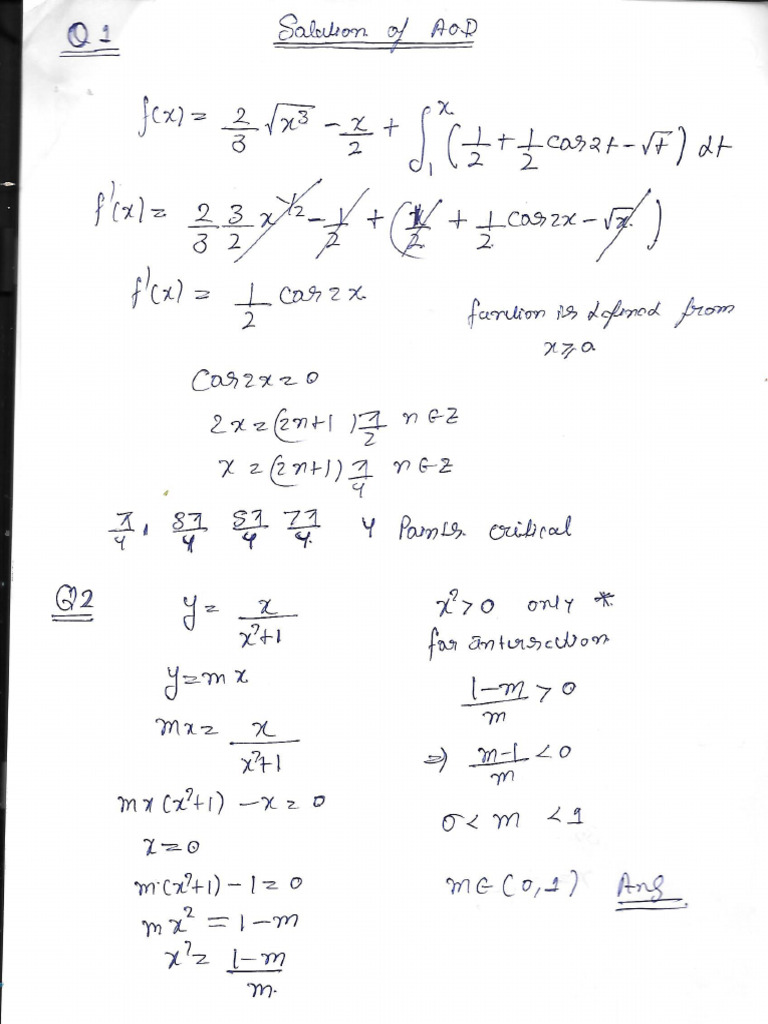 Q1
Solution of AOD
f(x) = 2/3 √x³ - x/2 + ∫₁ˣ (1/2 + 1/2 cos2t - √t) dt
f'(x) = 2/3 3/2 x^1/2 - 1/2 + (1/2 + 1/2 cos2x - √x)
f'(x) = 1/2 cos2x
function is defined from
x ≥ 0
cos2x = 0
2x = (2n+1)π/2 n∈Z
x = (2n+1)π/4 n∈Z
π/4, 3π/4 5π/4 7π/4 4 Points critical
Q2
y = x/(x²+1)
y = mx
mx = x/(x²+1)
mx(x²+1) - x = 0
x = 0
m·(x²+1) - 1 = 0
mx² = 1-m
x² = (1-m)/m.
x² > 0 only *
for intersection
(1-m)/m > 0
⇒ (m-1)/m < 0
0 < m < 1
m∈(0,1) Ans